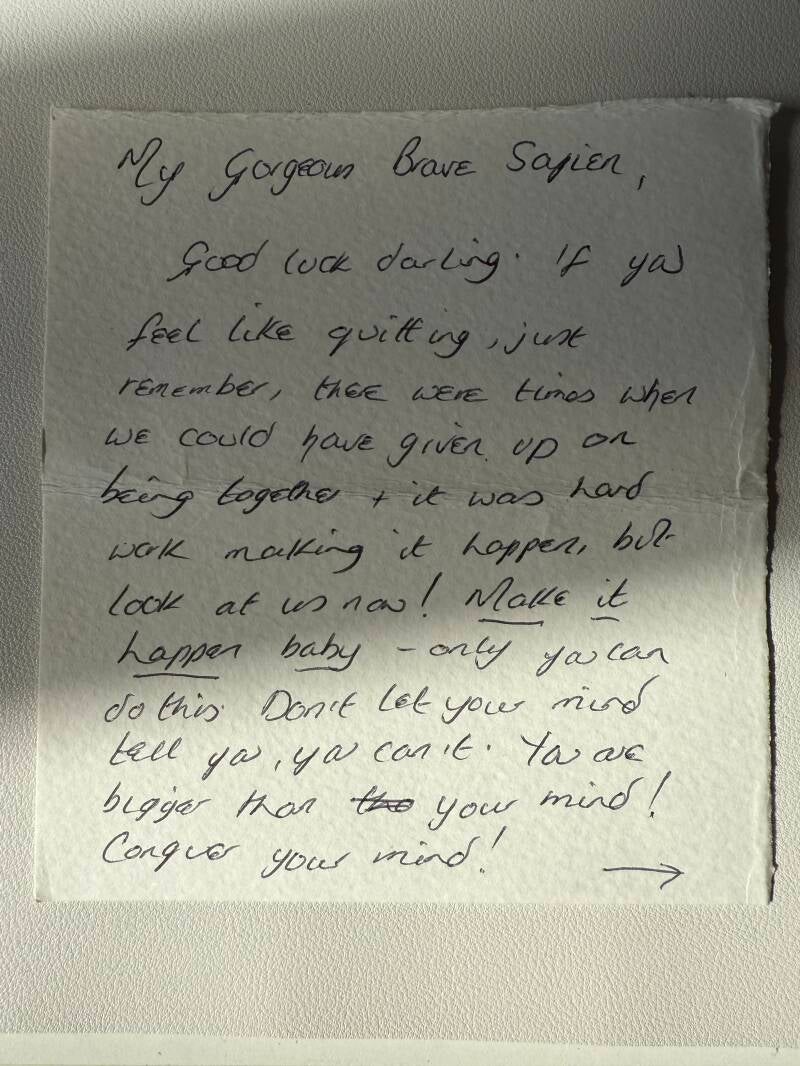 My Gorgeous Brave Sapien,
Good luck darling. If you
feel like quitting, just
remember, there were times when
we could have given up on
being together + it was hard
work making it happen, but
look at us now! Make it
happen baby - only you can
do this. Don't let your mind
tell you, you can't. You are
bigger than the your mind!
Conquer your mind!
→